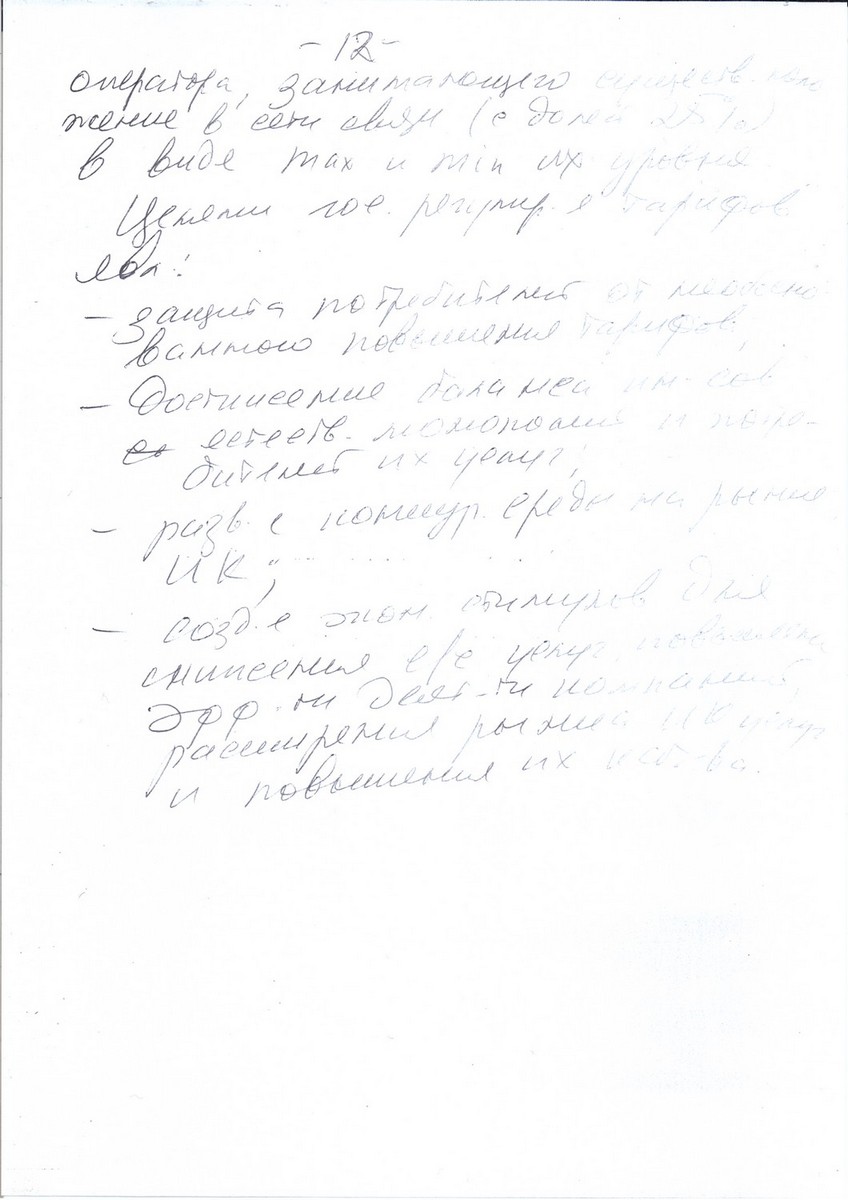 - 12 -
оператора, занимающего существ. поло
жение в сети связи (с долей 25%)
в виде max и min их уровня
Целями гос. регулир-я тарифов
явл:
- защита потребителей от необосно
ванного повышения тарифов;
- Достижение баланса ин-сов
естеств. монополий и потре-
бителей их услуг;
- разв-е конкур. среды на рынке
ИК;
- созд-е экон. стимулов для
снижения с/с услуг, повышения
эфф-ти деят-ти компаний,
расширения рынка ИК услуг
и повышения их кач-ва.